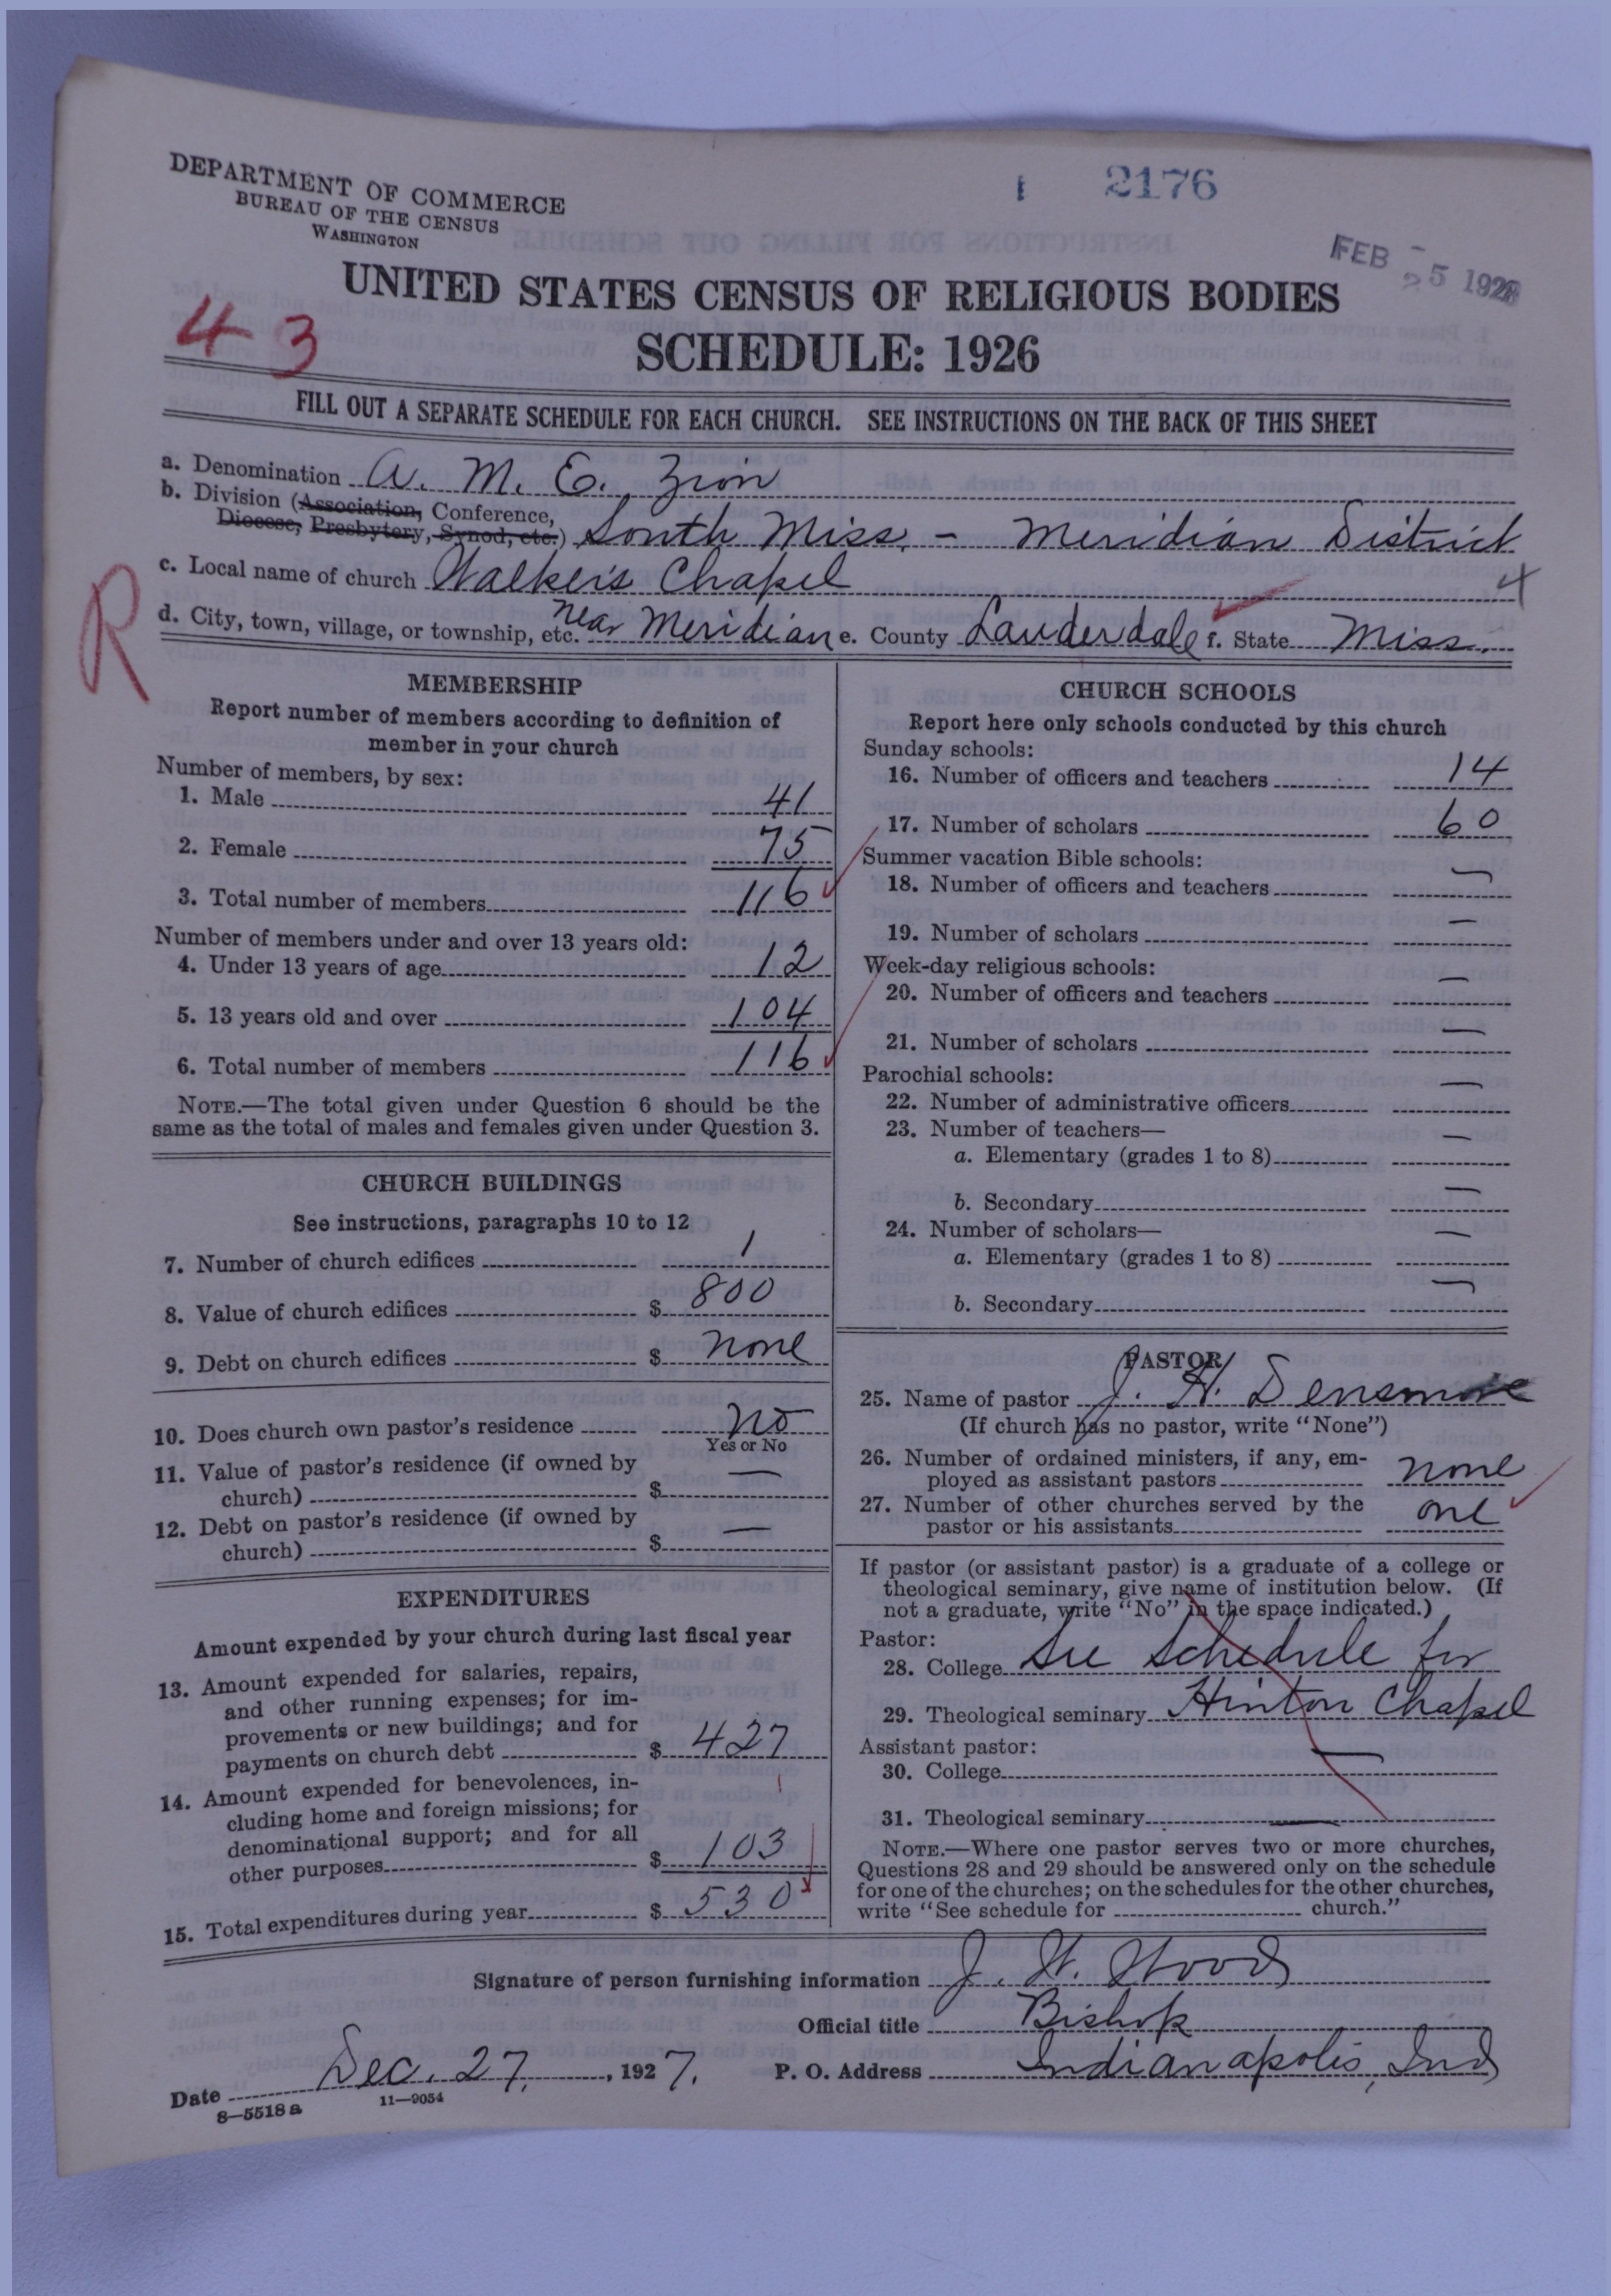 DEPARTMENT OF COMMERCE
BUREAU OF THE CENSUS
WASHINGTON
2176
FEB 25 1928
UNITED STATES CENSUS OF RELIGIOUS BODIES
43
SCHEDULE: 1926
FILL OUT A SEPARATE SCHEDULE FOR EACH CHURCH. SEE INSTRUCTIONS ON THE BACK OF THIS SHEET
a. Denomination A. M. E. Zion
b. Division (Association, Conference,
Diocese, Presbytery, Synod, etc.) South Miss. - Meridian District
c. Local name of church Walker's Chapel 4
R
d. City, town, village, or township, etc. near Meridian e. County Lauderdale f. State Miss.
MEMBERSHIP
Report number of members according to definition of
member in your church
Number of members, by sex:
1. Male 41
2. Female 75
3. Total number of members 116
Number of members under and over 13 years old:
4. Under 13 years of age 12
5. 13 years old and over 104
6. Total number of members 116
NOTE.—The total given under Question 6 should be the
same as the total of males and females given under Question 3.
CHURCH BUILDINGS
See instructions, paragraphs 10 to 12
7. Number of church edifices 1
8. Value of church edifices $ 800
9. Debt on church edifices $ none
10. Does church own pastor's residence no
Yes or No
11. Value of pastor's residence (if owned by
church) $ —
12. Debt on pastor's residence (if owned by
church) $ —
EXPENDITURES
Amount expended by your church during last fiscal year
13. Amount expended for salaries, repairs,
and other running expenses; for im-
provements or new buildings; and for
payments on church debt $ 427
14. Amount expended for benevolences, in-
cluding home and foreign missions; for
denominational support; and for all
other purposes $ 103
15. Total expenditures during year $ 530
CHURCH SCHOOLS
Report here only schools conducted by this church
Sunday schools:
16. Number of officers and teachers 14
17. Number of scholars 60
Summer vacation Bible schools:
18. Number of officers and teachers —
19. Number of scholars —
Week-day religious schools:
20. Number of officers and teachers —
21. Number of scholars —
Parochial schools:
22. Number of administrative officers —
23. Number of teachers—
a. Elementary (grades 1 to 8) —
b. Secondary —
24. Number of scholars—
a. Elementary (grades 1 to 8) —
b. Secondary —
PASTOR
25. Name of pastor J. H. Densmore
(If church has no pastor, write "None")
26. Number of ordained ministers, if any, em-
ployed as assistant pastors none
27. Number of other churches served by the
pastor or his assistants one
If pastor (or assistant pastor) is a graduate of a college or
theological seminary, give name of institution below. (If
not a graduate, write "No" in the space indicated.)
Pastor:
28. College See Schedule for
29. Theological seminary Hinton Chapel
Assistant pastor:
30. College —
31. Theological seminary —
NOTE.—Where one pastor serves two or more churches,
Questions 28 and 29 should be answered only on the schedule
for one of the churches; on the schedules for the other churches,
write "See schedule for church."
Signature of person furnishing information J. W. Wood
Official title Bishop
Date Dec. 27, 1927. P. O. Address Indianapolis, Ind
8—5518 a 11—9054